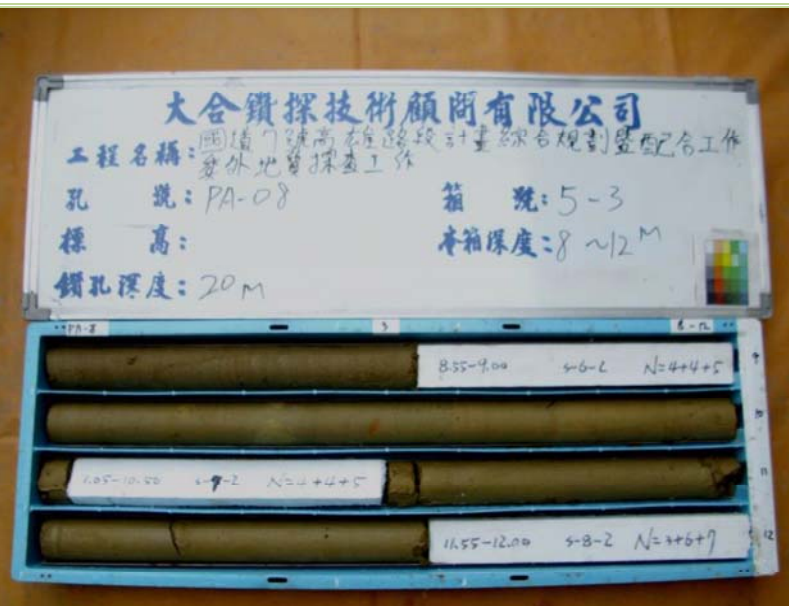 大合鑽探技術顧問有限公司
工程名稱：國道7號高雄路段計畫綜合規劃暨配合工作
委外地質探查工作
孔 號：PA-08 箱 號：5-3
標 高： 本箱深度：8~12M
鑽孔深度：20M
PA-8 3 8-12
8.55-9.00 S-6-2 N=4+4+5
S-7-2 N=4+4+5
11
11.55-12.00 S-8-2 N=3+6+7
12